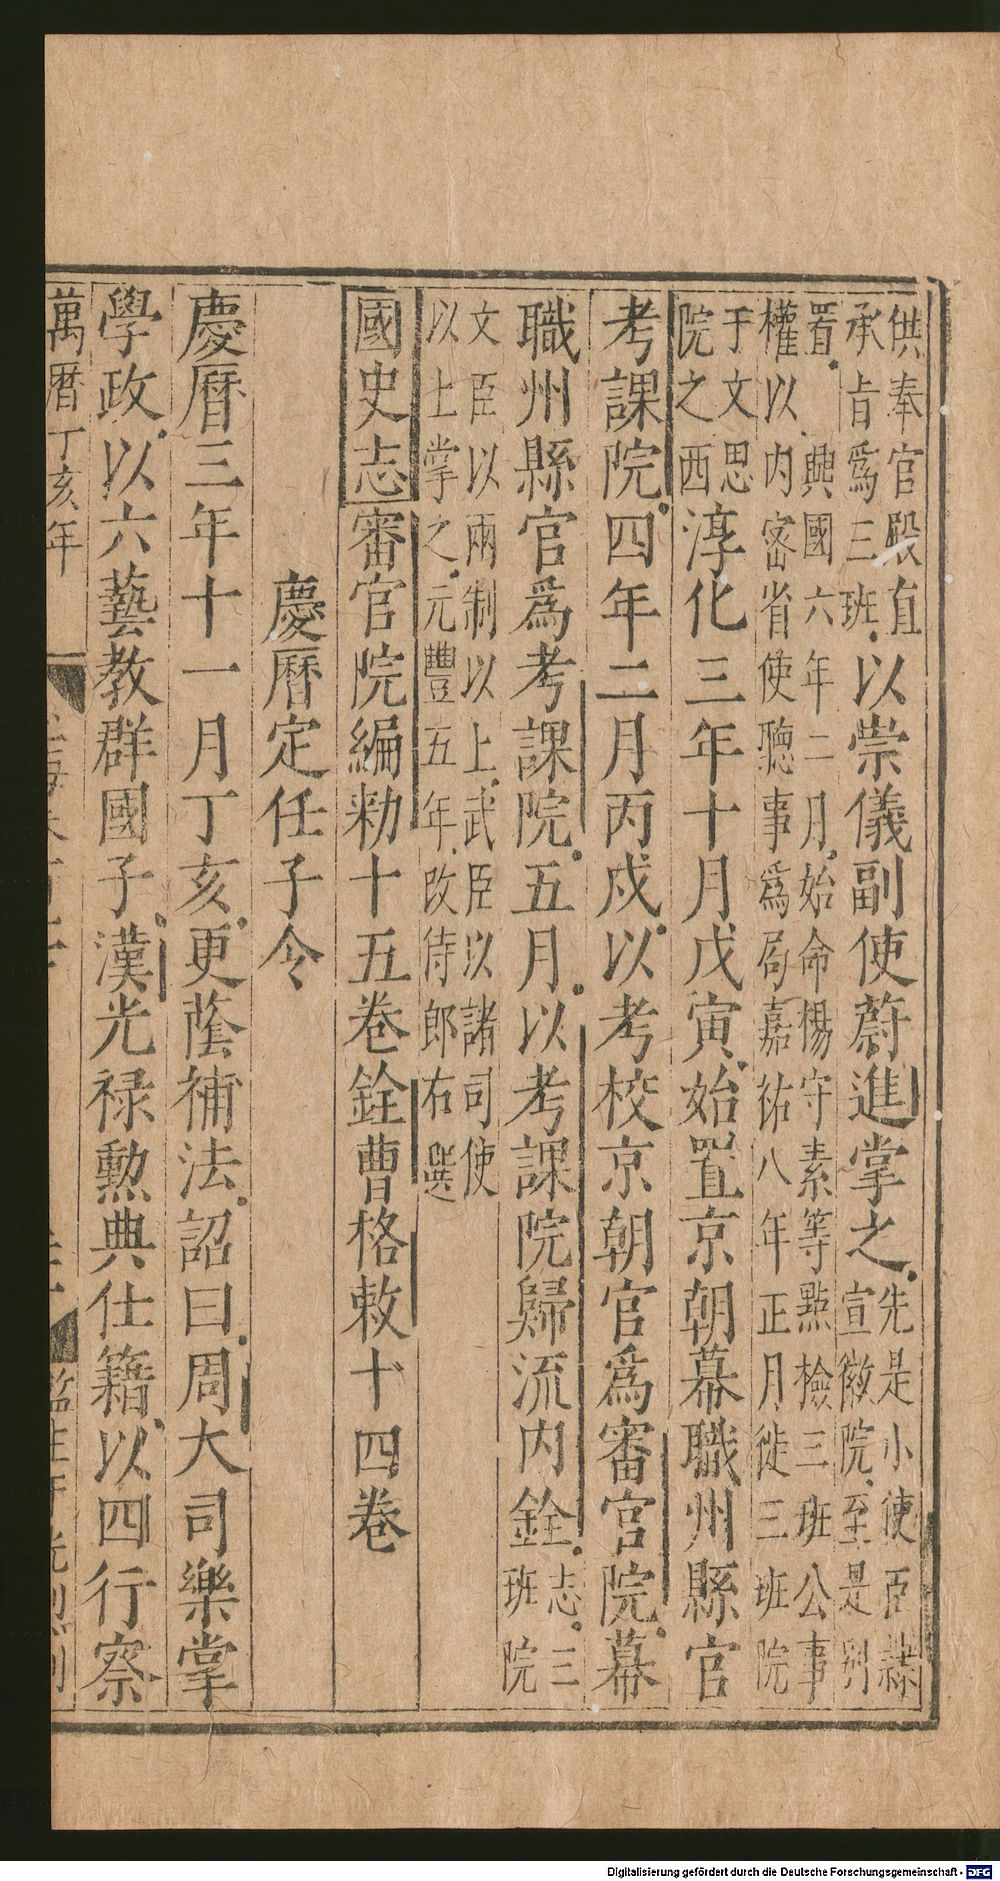 供奉官殿直承旨爲三班以崇儀副使蔚進掌之先是小使臣隸宣徽院至是別
置興國六年二月始命楊守素等點檢三班公事權以内客省使聽事爲局嘉祐八年正月徙三班院
于文思院之西淳化三年十月戊寅始置京朝幕職州縣官
考課院四年二月丙戌以考校京朝官爲審官院幕
職州縣官爲考課院五月以考課院歸流内銓志三班院
文臣以兩制以上武臣以諸司使以上掌之元豐五年改侍郎右選
國史志審官院編勑十五卷銓曹格敕十四卷
慶曆定任子令
慶曆三年十一月丁亥更蔭補法詔曰周大司樂掌
學政以六藝教群國子漢光禄勲典仕籍以四行察
萬曆丁亥年
Digitalisierung gefördert durch die Deutsche Forschungsgemeinschaft - DFG